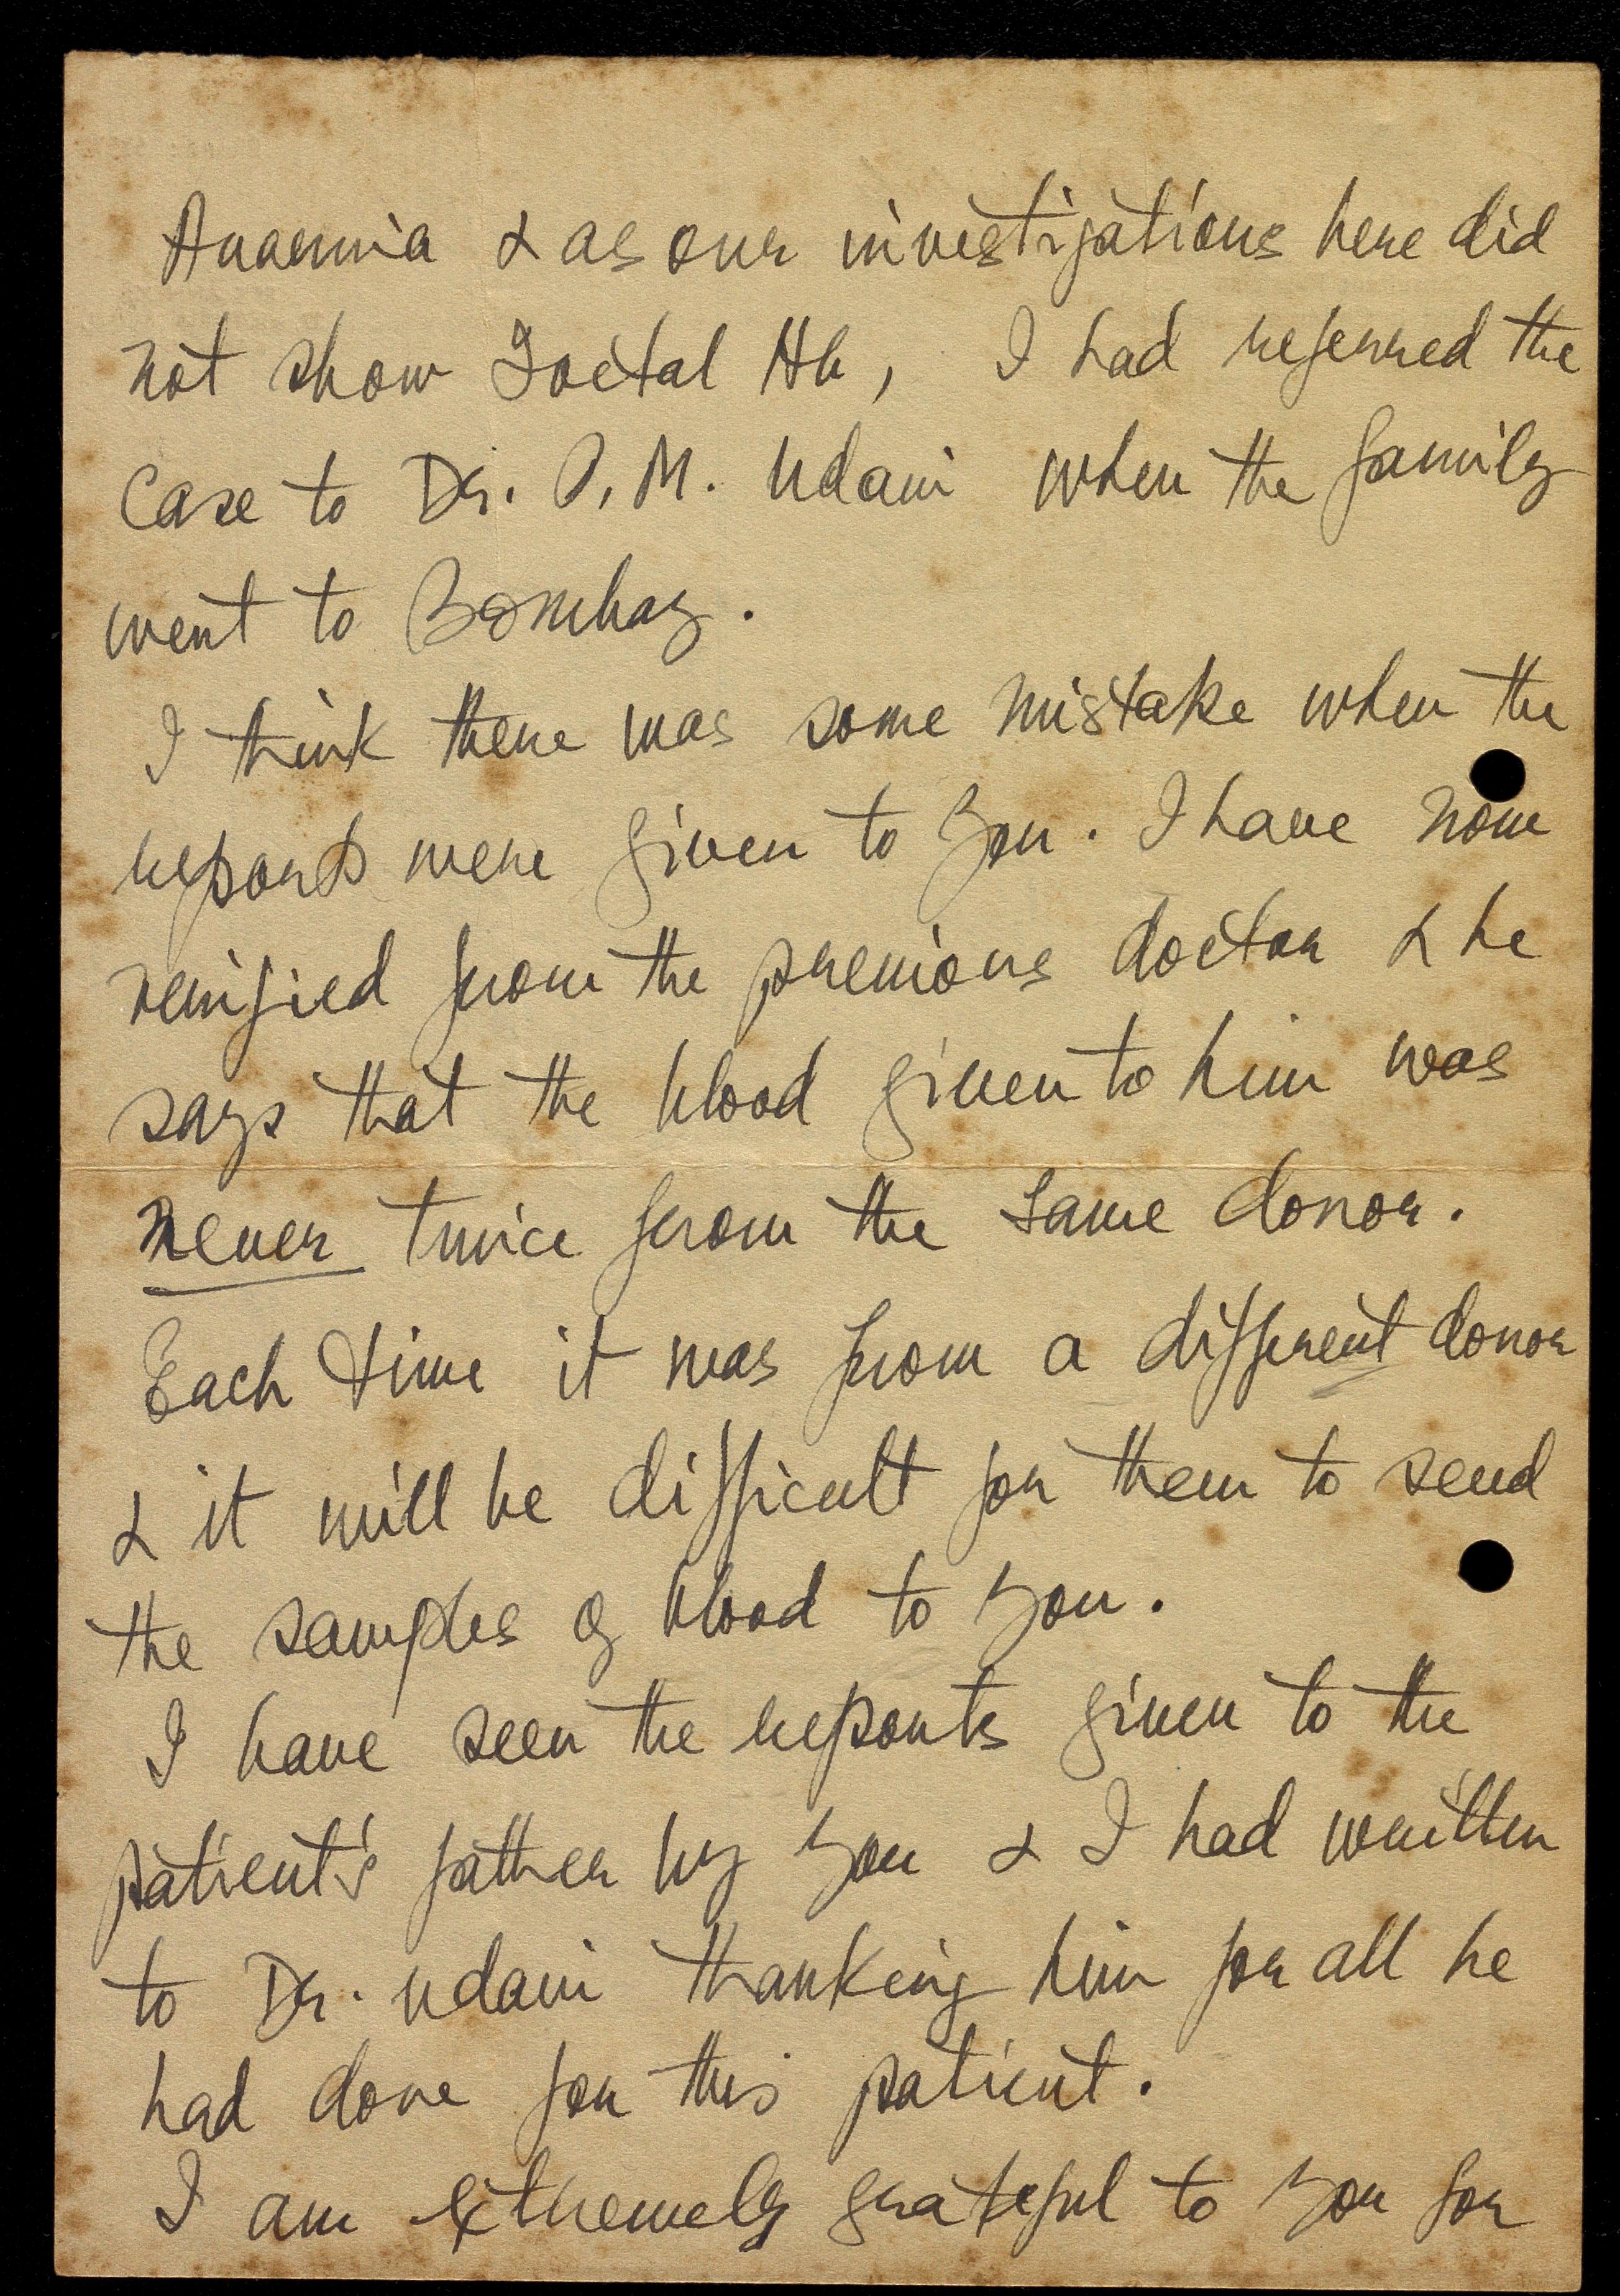 Anaemia & as our investigations here did
not show Foetal Hb, I had referred the
case to Dr. P. M. Udani when the family
went to Bombay.
I think there was some mistake when the
reports were given to you. I have now
verified from the previous doctor & he
says that the blood given to him was
never twice from the same donor.
Each time it was from a different donor
& it will be difficult for them to send
the samples of blood to you.
I have seen the reports given to the
patient's father by you & I had written
to Dr. Udani thanking him for all he
had done for this patient.
I am extremely grateful to you for